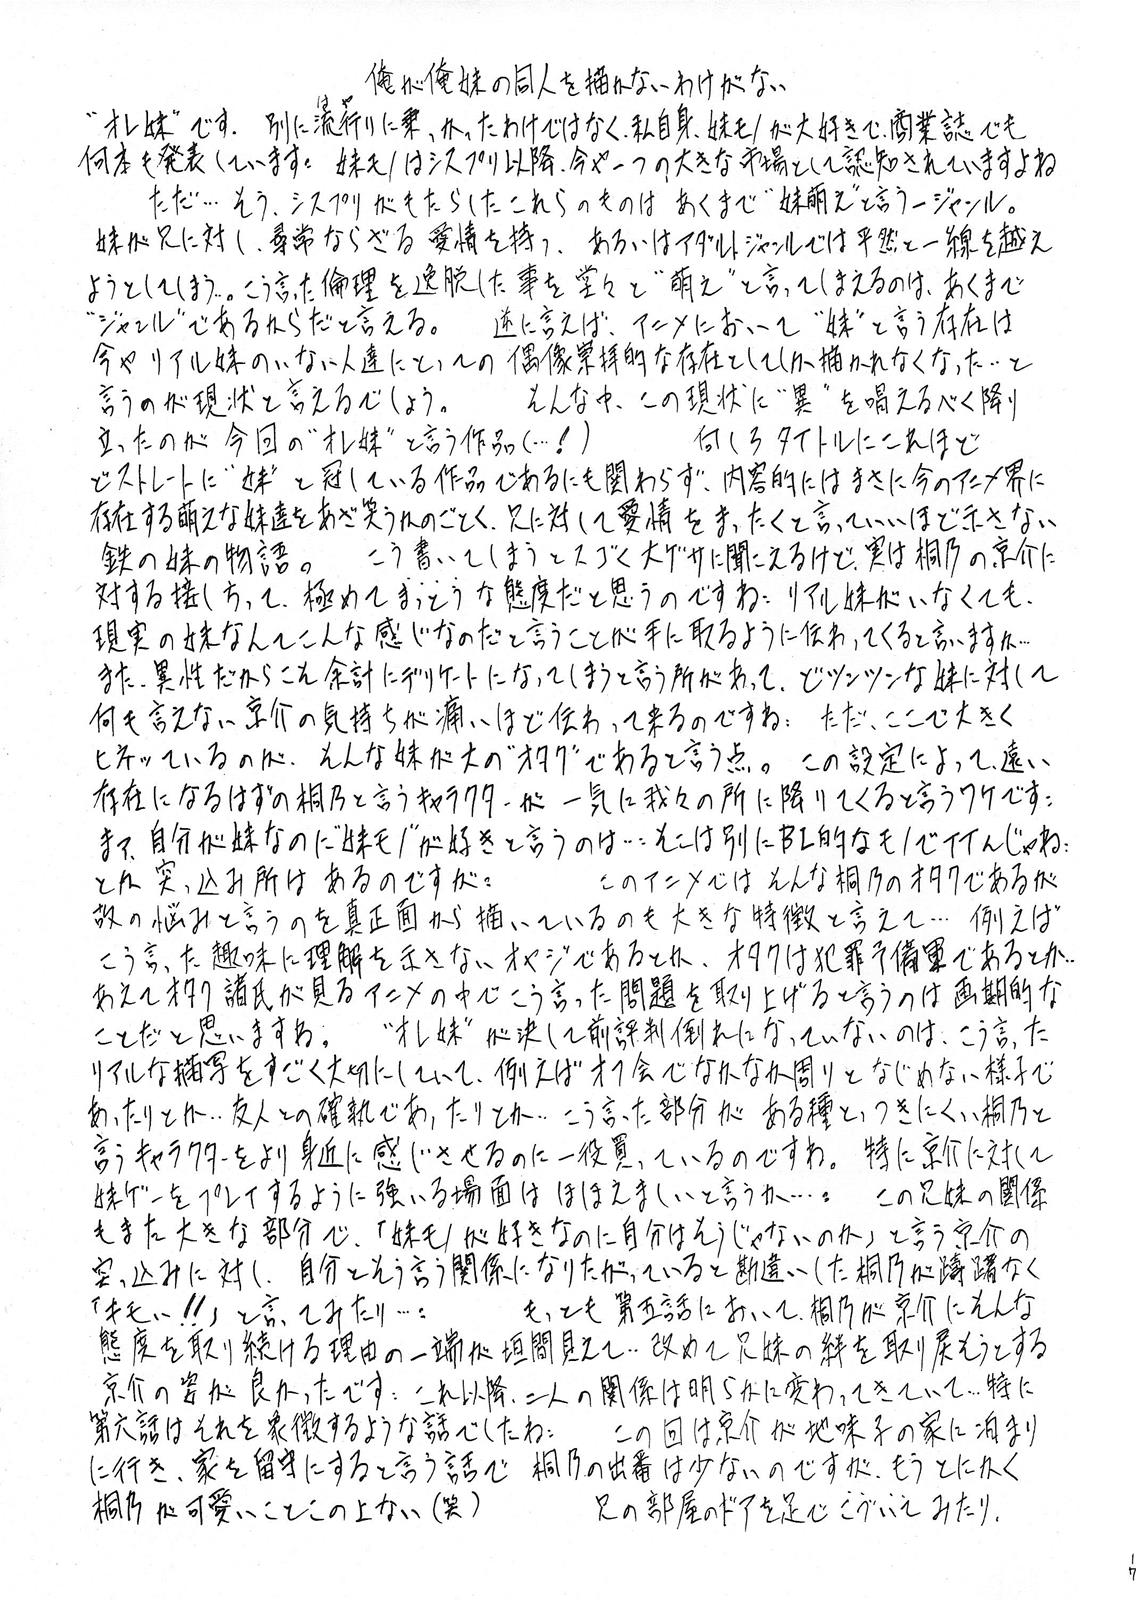 俺が俺妹の同人を描かないわけがない
"オレ妹"です. 別に流行(はや)りに乗っかったわけではなく、私自身、妹モノが大好きで、商業誌でも
何本も発表しています: 妹モノはシスプリ以降、今や一つの大きな市場として認知されていますよね
ただ… そう、シスプリがもたらしたこれらのものは あくまで"妹萌え"と言う一ジャンル。
妹が兄に対し、尋常ならざる愛情を持つ、 あるいはアダルトジャンルでは平然と一線を越え
ようとしてしまう…。こう言った倫理を逸脱した事を堂々と"萌え"と言ってしまえるのは、あくまで
"ジャンル"であるからだと言える。 逆に言えば、アニメにおいて"妹"と言う存在は
今やリアル妹のいない人達にとっての偶像崇拝的な存在としてしか描かれなくなった…と
言うのが現状と言えるでしょう。 そんな中、この現状に"異"を唱えるべく降り
立ったのが今回の"オレ妹"と言う作品(…!) 何しろタイトルにこれほど
どストレートに"妹"と冠している作品であるにも関わらず、内容的にはまさに今のアニメ界に
存在する萌えな妹達をあざ笑うかのごとく、兄に対して愛情をまったくと言っていいほど示さない
鉄の妹の物語。 こう書いてしまうとスゴく大ゲサに聞こえるけど、実は桐乃の京介に
対する接し方って、極めてまっとうな態度だと思うのですね: リアル妹がいなくても、
現実の妹なんてこんな感じなのだと言うことが手に取るように伝わってくると言いますか…
また、異性だからこそ余計にデリケートになってしまうと言う所があって、どツンツンな妹に対して
何も言えない京介の気持ちが痛いほど伝わって来るのですね: ただ、ここで大きく
ヒネっているのが、そんな妹が大の"オタク"であると言う点。 この設定によって、遠い
存在になるはずの桐乃と言うキャラクターが一気に我々の所に降りてくると言うワケです:
まァ、自分が妹なのに"妹モノ"が好きと言うのは…:そこは別にBL的なモノでイイんじゃね:
とか突っ込み所はあるのですが: このアニメではそんな桐乃のオタクであるが
故の悩みと言うのを真正面から描いているのも大きな特徴と言えて… 例えば
こう言った趣味に理解を示さないオヤジであるとか、オタクは犯罪予備軍であるとか‥
あえてオタク諸氏が見るアニメの中でこう言った問題を取り上げると言うのは画期的な
ことだと思いますね。 "オレ妹"が決して前評判倒れになっていないのは、こう言った
リアルな描写をすごく大切にしていて、例えばオフ会でなかなか周りとなじめない様子で
あったりとか‥友人との確執であったりとか‥こう言った部分がある種とっつきにくい桐乃と
言うキャラクターをより身近に感じさせるのに一役買っているのですね。 特に京介に対して
妹ゲーをプレイするように強いる場面はほほえましいと言うか…: この兄妹の関係
もまた大きな部分で、「妹モノが好きなのに自分はそうじゃないのか」と言う京介の
突っ込みに対し、自分とそう言う関係になりたがっていると勘違いした桐乃が躊躇なく
「キモい!!」と言ってみたり…: もっとも第五話において、桐乃が京介にそんな
態度を取り続ける理由の一端が垣間見えて‥改めて兄妹の絆を取り戻そうとする
京介の姿が良かったです: これ以降、二人の関係は明らかに変わってきていて…特に
第六話はそれを象徴するような話でしたね: この回は京介が地味子の家に泊まり
に行き、家を留守にすると言う話で桐乃の出番は少ないのですが、もうとにかく
桐乃が可愛いことこの上ない(笑) 兄の部屋のドアを足でこづいてみたり、
17